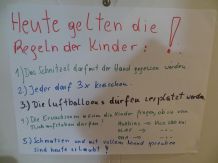 Heute gelten die
Regeln der Kinder: !
1) Das Schnitzel darf mit der Hand gegessen werden
2) Jeder darf 3x kreischen.
3) Die Luftballons dürfen zerplatzt werden
4) Die Erwachsenen müssen die Kinder fragen, ob sie von
5) Schmatzen und mit vollem Mund sprechen
sind heute erlaubt!